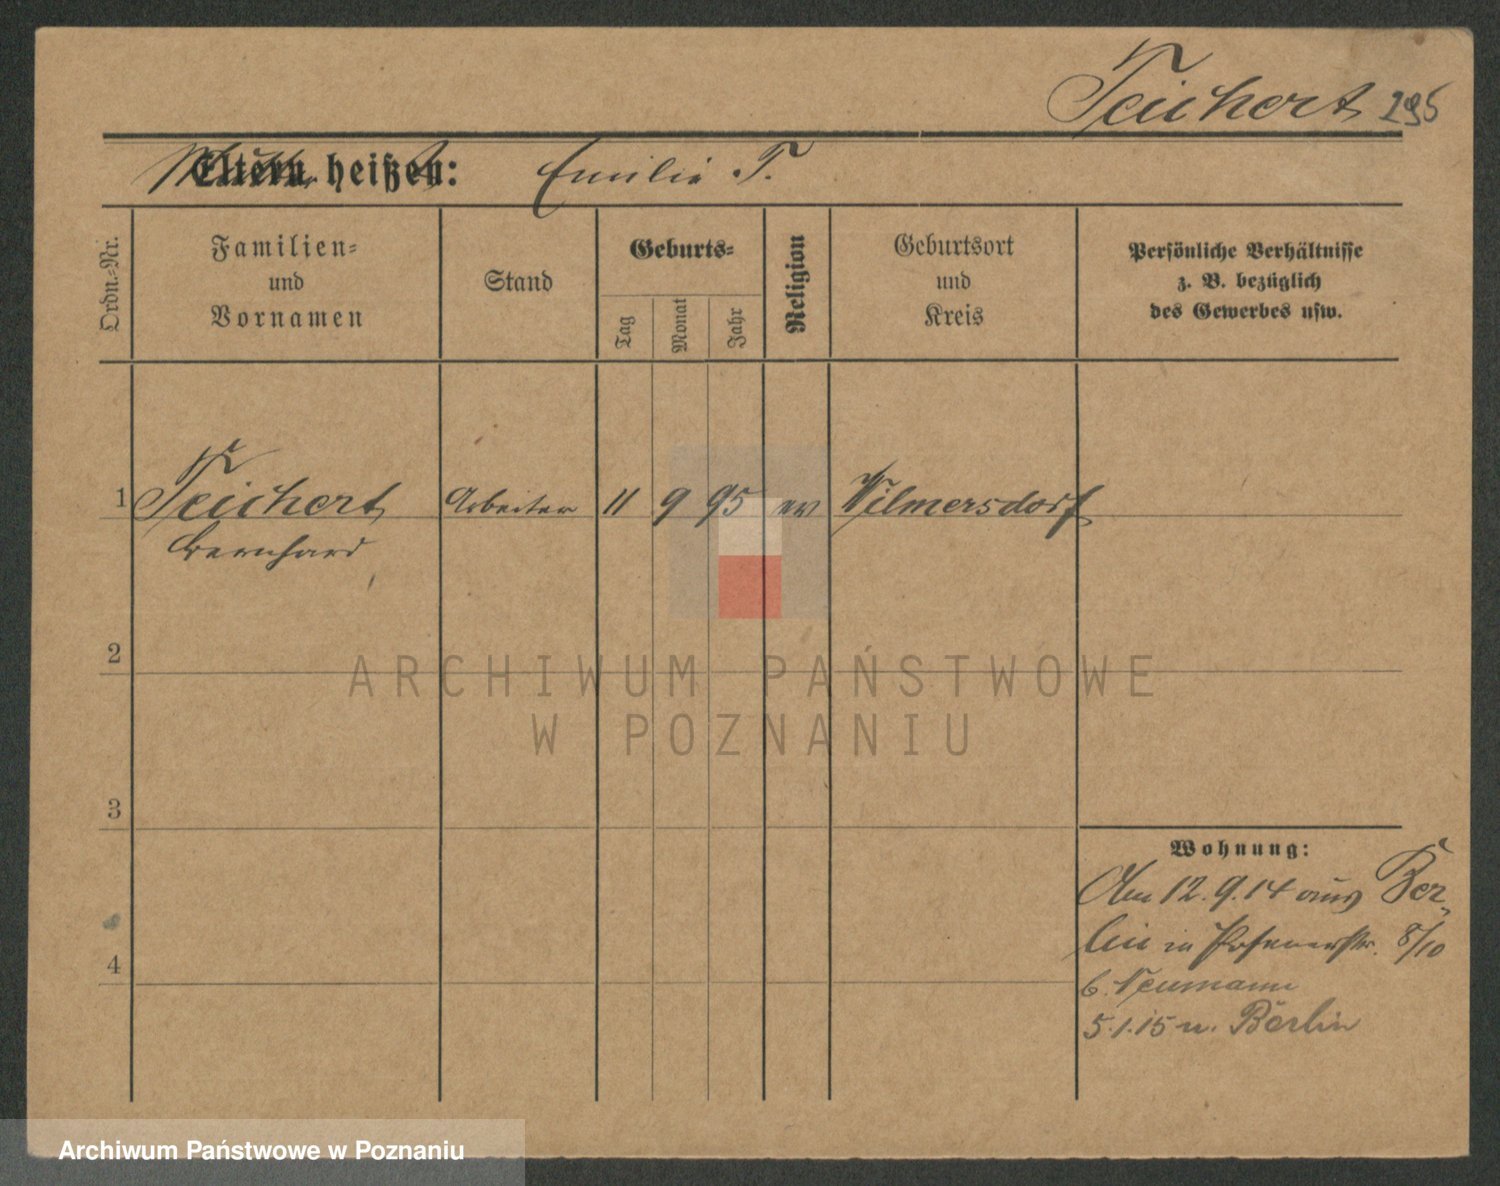 Teichert 295
Mutter Eltern heißen: Emilie T.
Ordn.-Nr.
Familien-
und
Vornamen
Stand
Geburts-
Tag
Monat
Jahr
Religion
Geburtsort
und
Kreis
Persönliche Verhältnisse
z. B. bezüglich
des Gewerbes usw.
1 Teichert Arbeiter 11 9 95 ev Wilmersdorf
Bernhard
2
3
4
Wohnung:
Am 12.9.14 aus Ber-
lin in Posenerstr. 8/10
b. Neumann
5.1.15 n. Berlin
ARCHIWUM PAŃSTWOWE
W POZNANIU
Archiwum Państwowe w Poznaniu